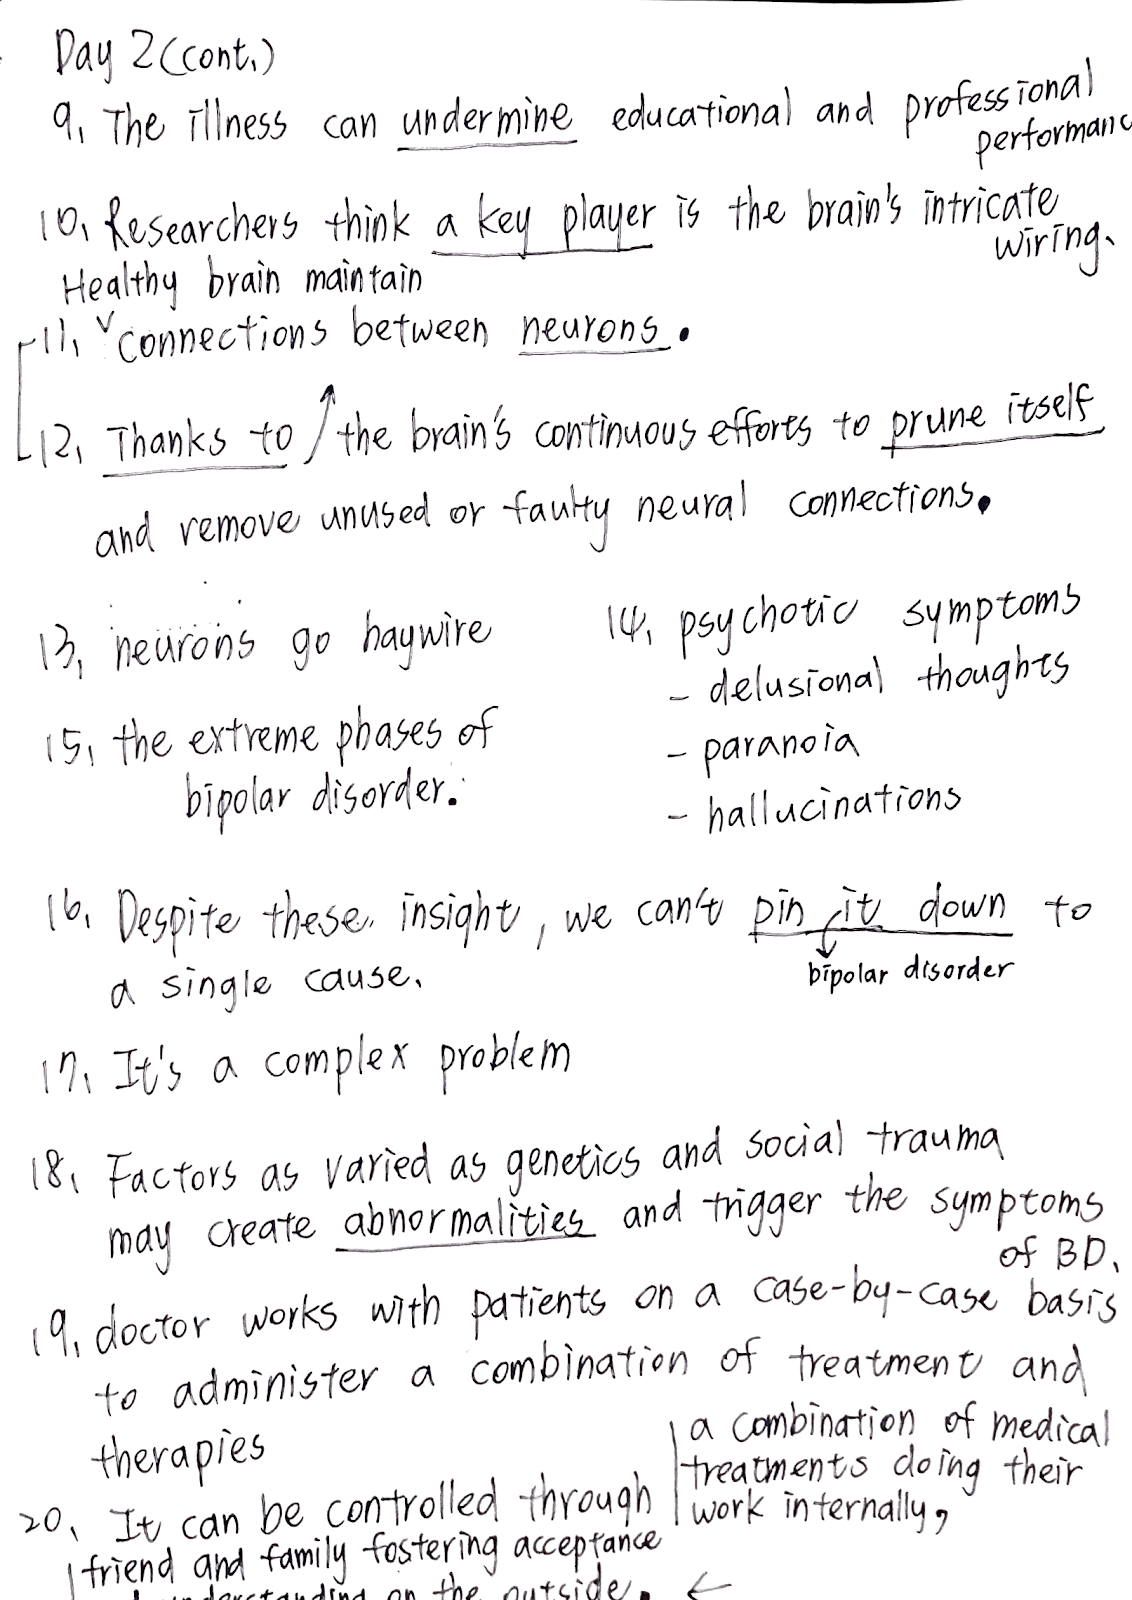 Day 2 (cont.)
9. The illness can undermine educational and professional
performanc
10. Researchers think a key player is the brain's intricate
wiring.
Healthy brain maintain
11. connections between neurons.
12. Thanks to the brain's continuous efforts to prune itself
and remove unused or faulty neural connections.
13. neurons go haywire
14. psychotic symptoms
- delusional thoughts
- paranoia
- hallucinations
15. the extreme phases of
bipolar disorder.
16. Despite these insight, we can't pin it down to
bipolar disorder
a single cause.
17. It's a complex problem
18. Factors as varied as genetics and social trauma
may create abnormalities and trigger the symptoms
of BD.
19. doctor works with patients on a case-by-case basis
to administer a combination of treatment and
therapies
20. It can be controlled through
a combination of medical
treatments doing their
work internally,
friend and family fostering acceptance
understanding on the outside.